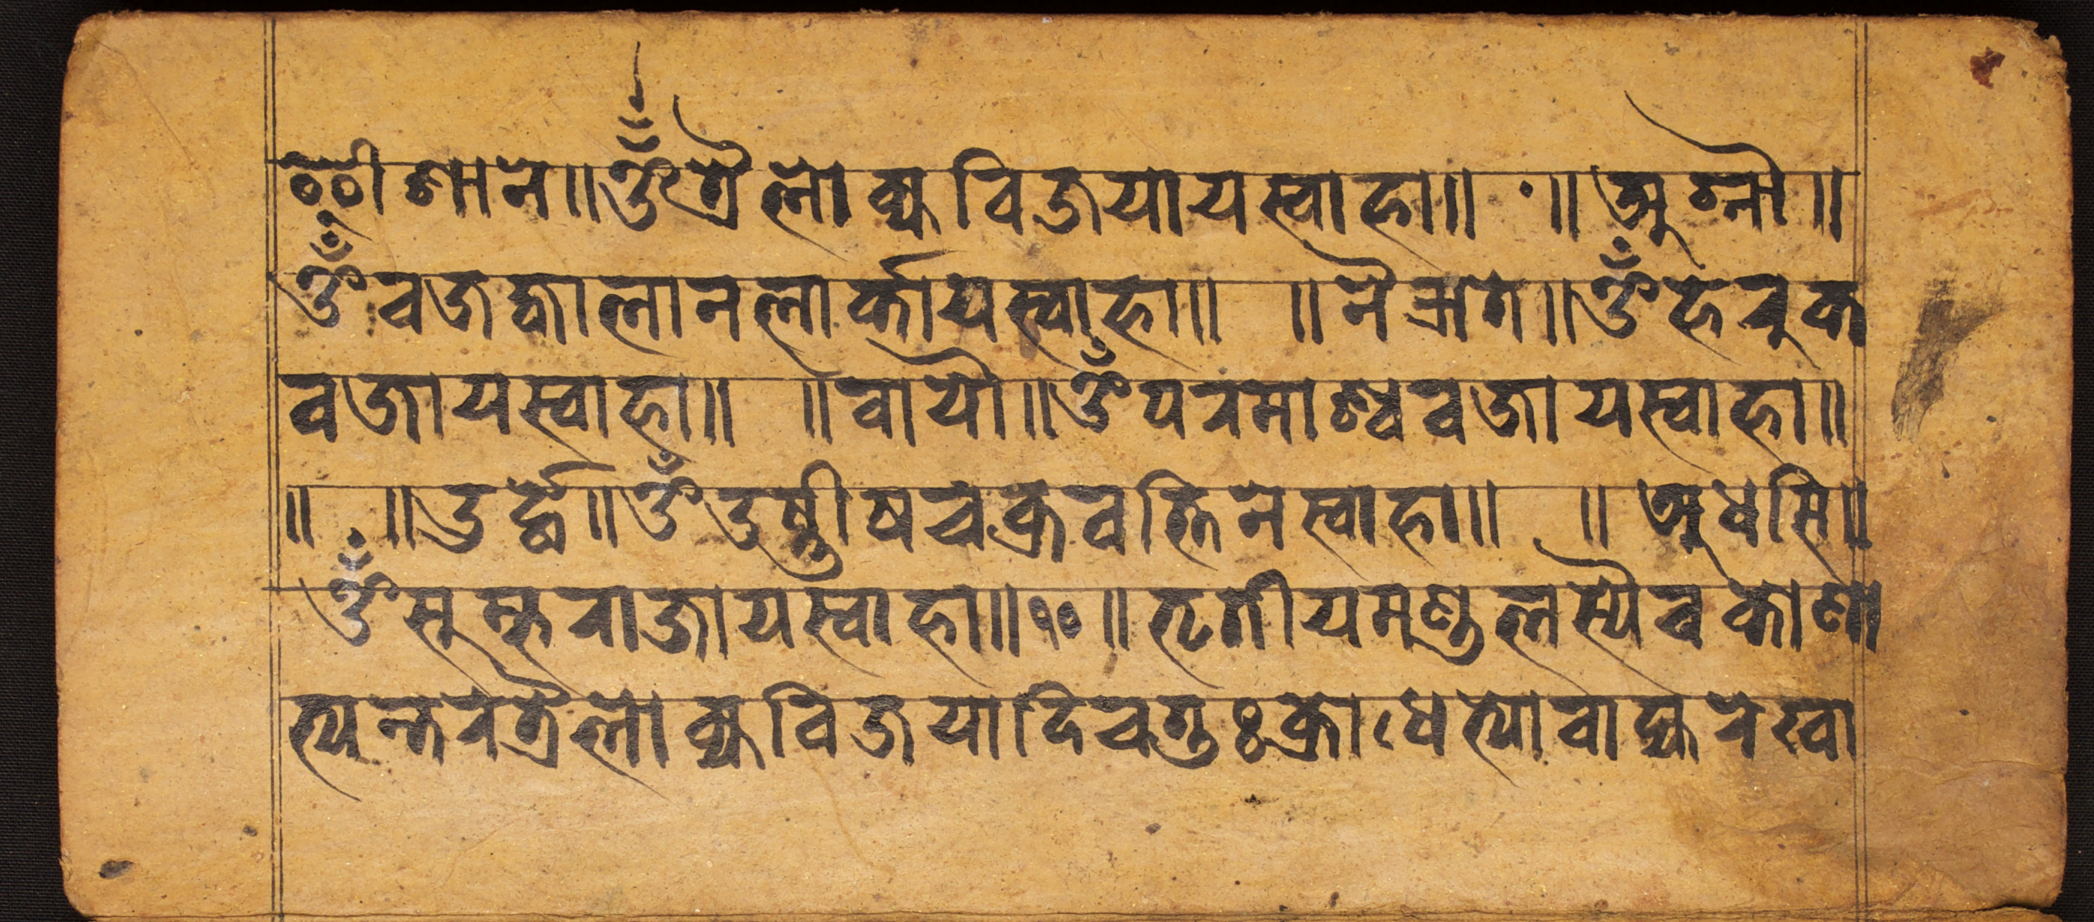 ईशाने॥ॐत्रैलोक्यविजयायस्वाहा॥ ॥अग्नौ॥
ॐवज्रज्वालानलार्कायस्वाहा॥ ॥नैऋते॥ॐहेरुक
वज्रायस्वाहा॥ ॥वायौ॥ॐपरमाश्ववज्रायस्वाहा॥
॥ ॥उर्द्ध॥ॐउष्णीषचक्रवर्त्तिनेस्वाहा॥ ॥अधसि॥
ॐसुम्भराजायस्वाहा॥१०॥तृतीयमण्डलस्यैवकोणा
त्यन्तरत्रैलोक्यविजयादिचतुःक्रोधेत्योवाह्यरेखा